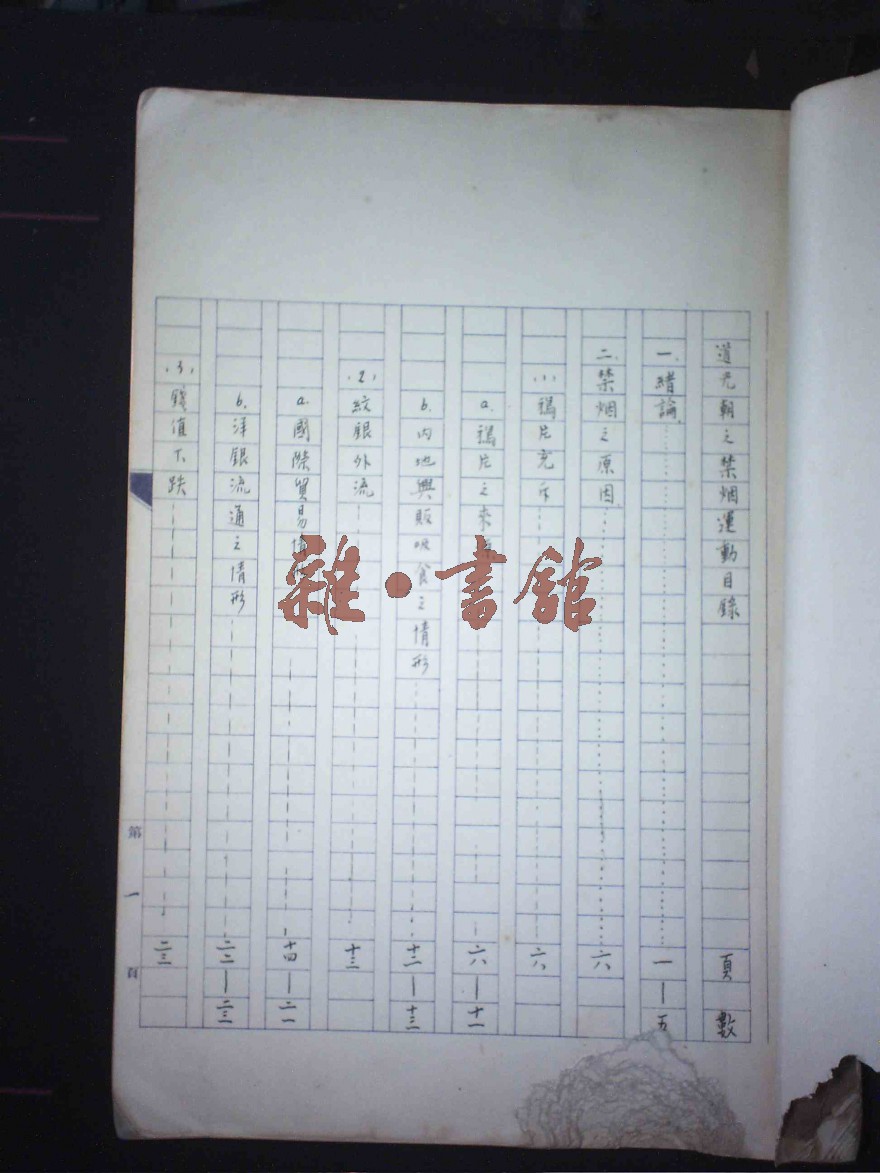 道光朝之禁烟運動目錄 頁數
一、緒論 一—五
二、禁烟之原因 六
(1)鴉片充斥 六
a.鴉片之來 六—十一
b.內地興販吸食之情形 十二—十三
(2)紋銀外流 十三
a.國際貿易情 十四—二一
b.洋銀流通之情形 二二—二三
(3)錢值下跌 二三
第一頁
雜·書館